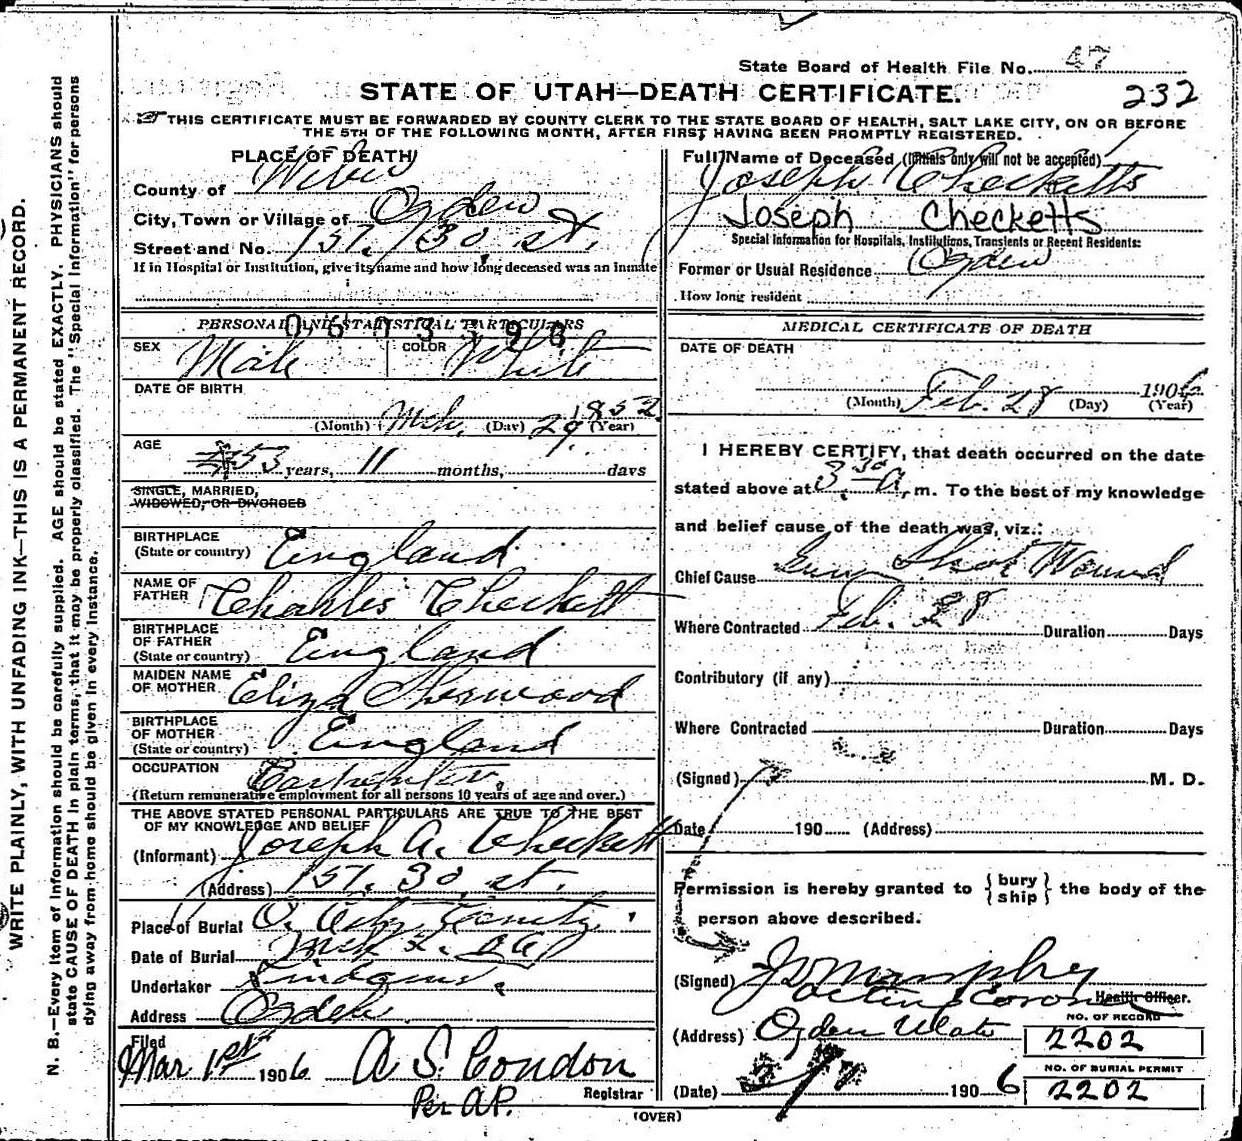 State Board of Health File No. 47
STATE OF UTAH—DEATH CERTIFICATE.
232
THIS CERTIFICATE MUST BE FORWARDED BY COUNTY CLERK TO THE STATE BOARD OF HEALTH, SALT LAKE CITY, ON OR BEFORE
THE 5TH OF THE FOLLOWING MONTH, AFTER FIRST HAVING BEEN PROMPTLY REGISTERED.
WRITE PLAINLY, WITH UNFADING INK—THIS IS A PERMANENT RECORD.
N. B.—Every item of information should be carefully supplied. AGE should be stated EXACTLY. PHYSICIANS should
state CAUSE OF DEATH in plain terms, that it may be properly classified. The "Special Information" for persons
dying away from home should be given in every instance.
PLACE OF DEATH
County of Weber
City, Town or Village of Ogden
Street and No. 157. 30 st.
If in Hospital or Institution, give its name and how long deceased was an inmate
PERSONAL AND STATISTICAL PARTICULARS
SEX Male COLOR White
DATE OF BIRTH
(Month) Mch. (Day) 29 1852 (Year)
AGE
53 years, 11 months, days
SINGLE, MARRIED,
WIDOWED, OR DIVORCED
BIRTHPLACE
(State or country) England
NAME OF
FATHER Charles Checketts
BIRTHPLACE
OF FATHER
(State or country) England
MAIDEN NAME
OF MOTHER Eliza Sherwood
BIRTHPLACE
OF MOTHER
(State or country) England
OCCUPATION Carpenter
(Return remunerative employment for all persons 10 years of age and over.)
THE ABOVE STATED PERSONAL PARTICULARS ARE TRUE TO THE BEST
OF MY KNOWLEDGE AND BELIEF
(Informant) Joseph A. Checketts
(Address) 157. 30 st.
Place of Burial
Date of Burial
Undertaker
Address Ogden
Filed
Mar 1st 1906 A S. Condon
Registrar
Per A.P.
Full Name of Deceased (Initials only will not be accepted)
Joseph Checketts
Joseph Checketts
Special Information for Hospitals, Institutions, Transients or Recent Residents:
Former or Usual Residence Ogden
How long resident
MEDICAL CERTIFICATE OF DEATH
DATE OF DEATH
Feb. 28 1906
(Month) (Day) (Year)
I HEREBY CERTIFY, that death occurred on the date
stated above at 3 30 A. m. To the best of my knowledge
and belief cause of the death was, viz.:
Chief Cause Gun Shot Wound
Where Contracted Feb. 28 Duration Days
Contributory (if any)
Where Contracted Duration Days
(Signed) M. D.
Date 190 (Address)
Permission is hereby granted to {bury ship} the body of the
person above described.
(Signed)
acting Coroner Health Officer.
(Address) Ogden Utah
NO. OF RECORD
2202
NO. OF BURIAL PERMIT
2202
(Date) 1906
(OVER)